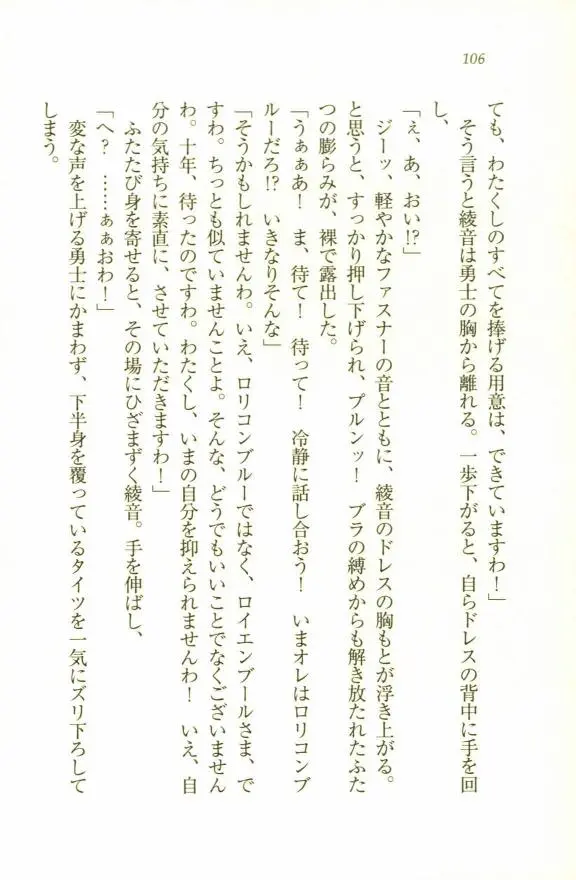 106
ても、わたくしのすべてを捧げる用意は、できていますわ！」
そう言うと綾音は勇士の胸から離れる。一歩下がると、自らドレスの背中に手を回
し、
「え、あ、おい!?」
ジーッ、軽やかなファスナーの音とともに、綾音のドレスの胸もとが浮き上がる。
と思うと、すっかり押し下げられ、プルンッ！　ブラの縛めからも解き放たれたふた
つの膨らみが、裸で露出した。
「うぁぁあ！　ま、待て！　待って！　冷静に話し合おう！　いまオレはロリコンブ
ルーだろ!?　いきなりそんな」
「そうかもしれませんわ。いえ、ロリコンブルーではなく、ロイエンブールさま、で
すわ。ちっとも似ていませんことよ。そんな、どうでもいいことでなくございません
わ。十年、待ったのですわ。わたくし、いまの自分を抑えられませんわ！　いえ、自
分の気持ちに素直に、させていただきますわ！」
ふたたび身を寄せると、その場にひざまずく綾音。手を伸ばし、
「へ？　……ぁぁおわ！」
変な声を上げる勇士にかまわず、下半身を覆っているタイツを一気にズリ下ろして
しまう。